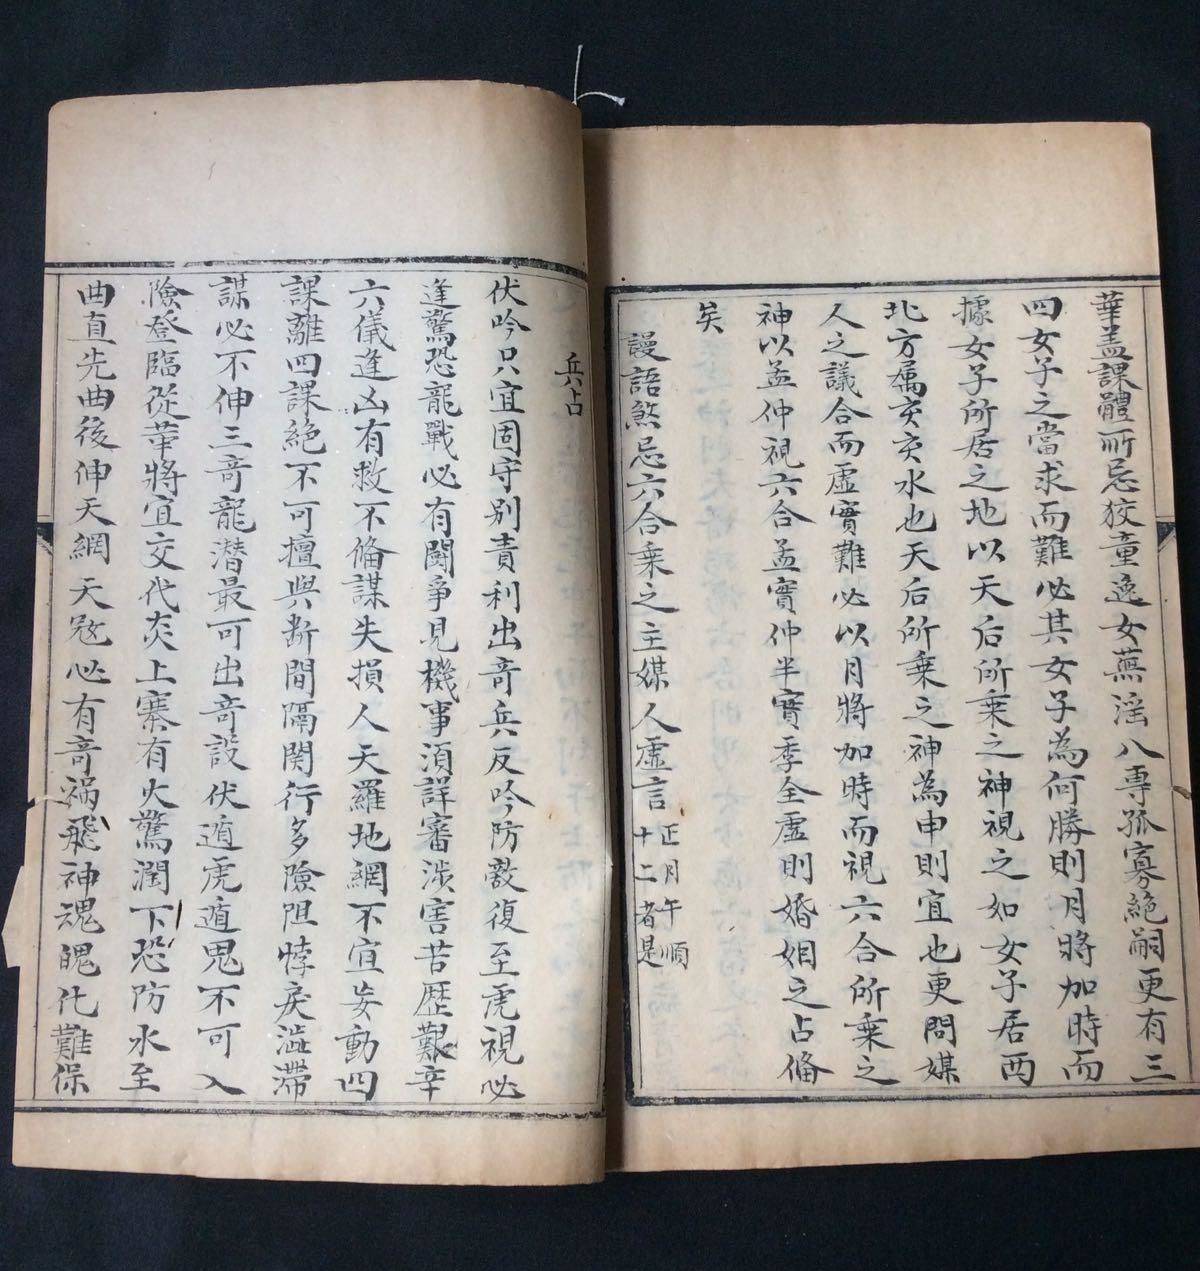 華盖課體所忌狡童逸女蕪淫八專孤寡絶嗣更有三
四女子之當求而難必其女子為何勝則月將加時而
據女子所居之地以天后所乘之神視之如女子居西
北方屬亥亥水也天后所乘之神為申則宜也更問媒
人之議合而虛實難必以月將加時而視六合所乘之
神以孟仲視六合孟實仲半實季全虛則婚姻之占俻
矣
謾語煞忌六合乗之主媒人虛言
正月午順
十二者是
兵占
伏吟只宜固守别責利出竒兵反吟防敵復至虎視必
逢驚恐龍戰必有鬪争見機事須詳審涉害苦歷艱辛
六儀逢凶有救不俻謀失損人天羅地網不宜妄動四
課離四課絶不可擅與断間隔関行多險阻悖戾澁滯
謀必不伸三竒龍潜最可出竒設伏遁虎遁鬼不可入
險登臨從革將宜交代炎上寨有火驚潤下恐防水至
曲直先曲後伸天網天寇必有竒禍飛神魂魄化難保